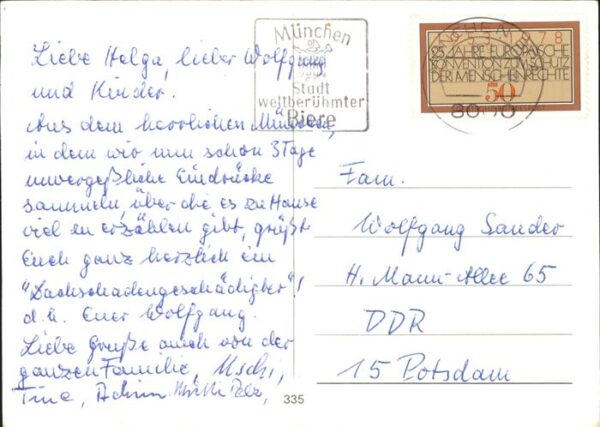 Liebe Helga, lieber Wolfgang
und Kinder.
Aus dem herrlichen München,
in dem wir nun schon 3 Tage
unvergeßliche Eindrücke
sammeln, über die es zu Hause
viel zu erzählen gibt, grüßt
Euch ganz herzlich ein
"Dachschadengeschädigter"!
d.h. Euer Wolfgang.
Liebe Grüße auch von der
ganzen Familie, Uschi,
Tina, Achim
München
Stadt
weltberühmter
Biere
MÜNCHEN
78
25 JAHRE EUROPÄISCHE
KONVENTION ZUM SCHUTZ
DER MENSCHENRECHTE
50
Fam.
Wolfgang Sander
H. Mann-Allee 65
DDR
15 Potsdam
335